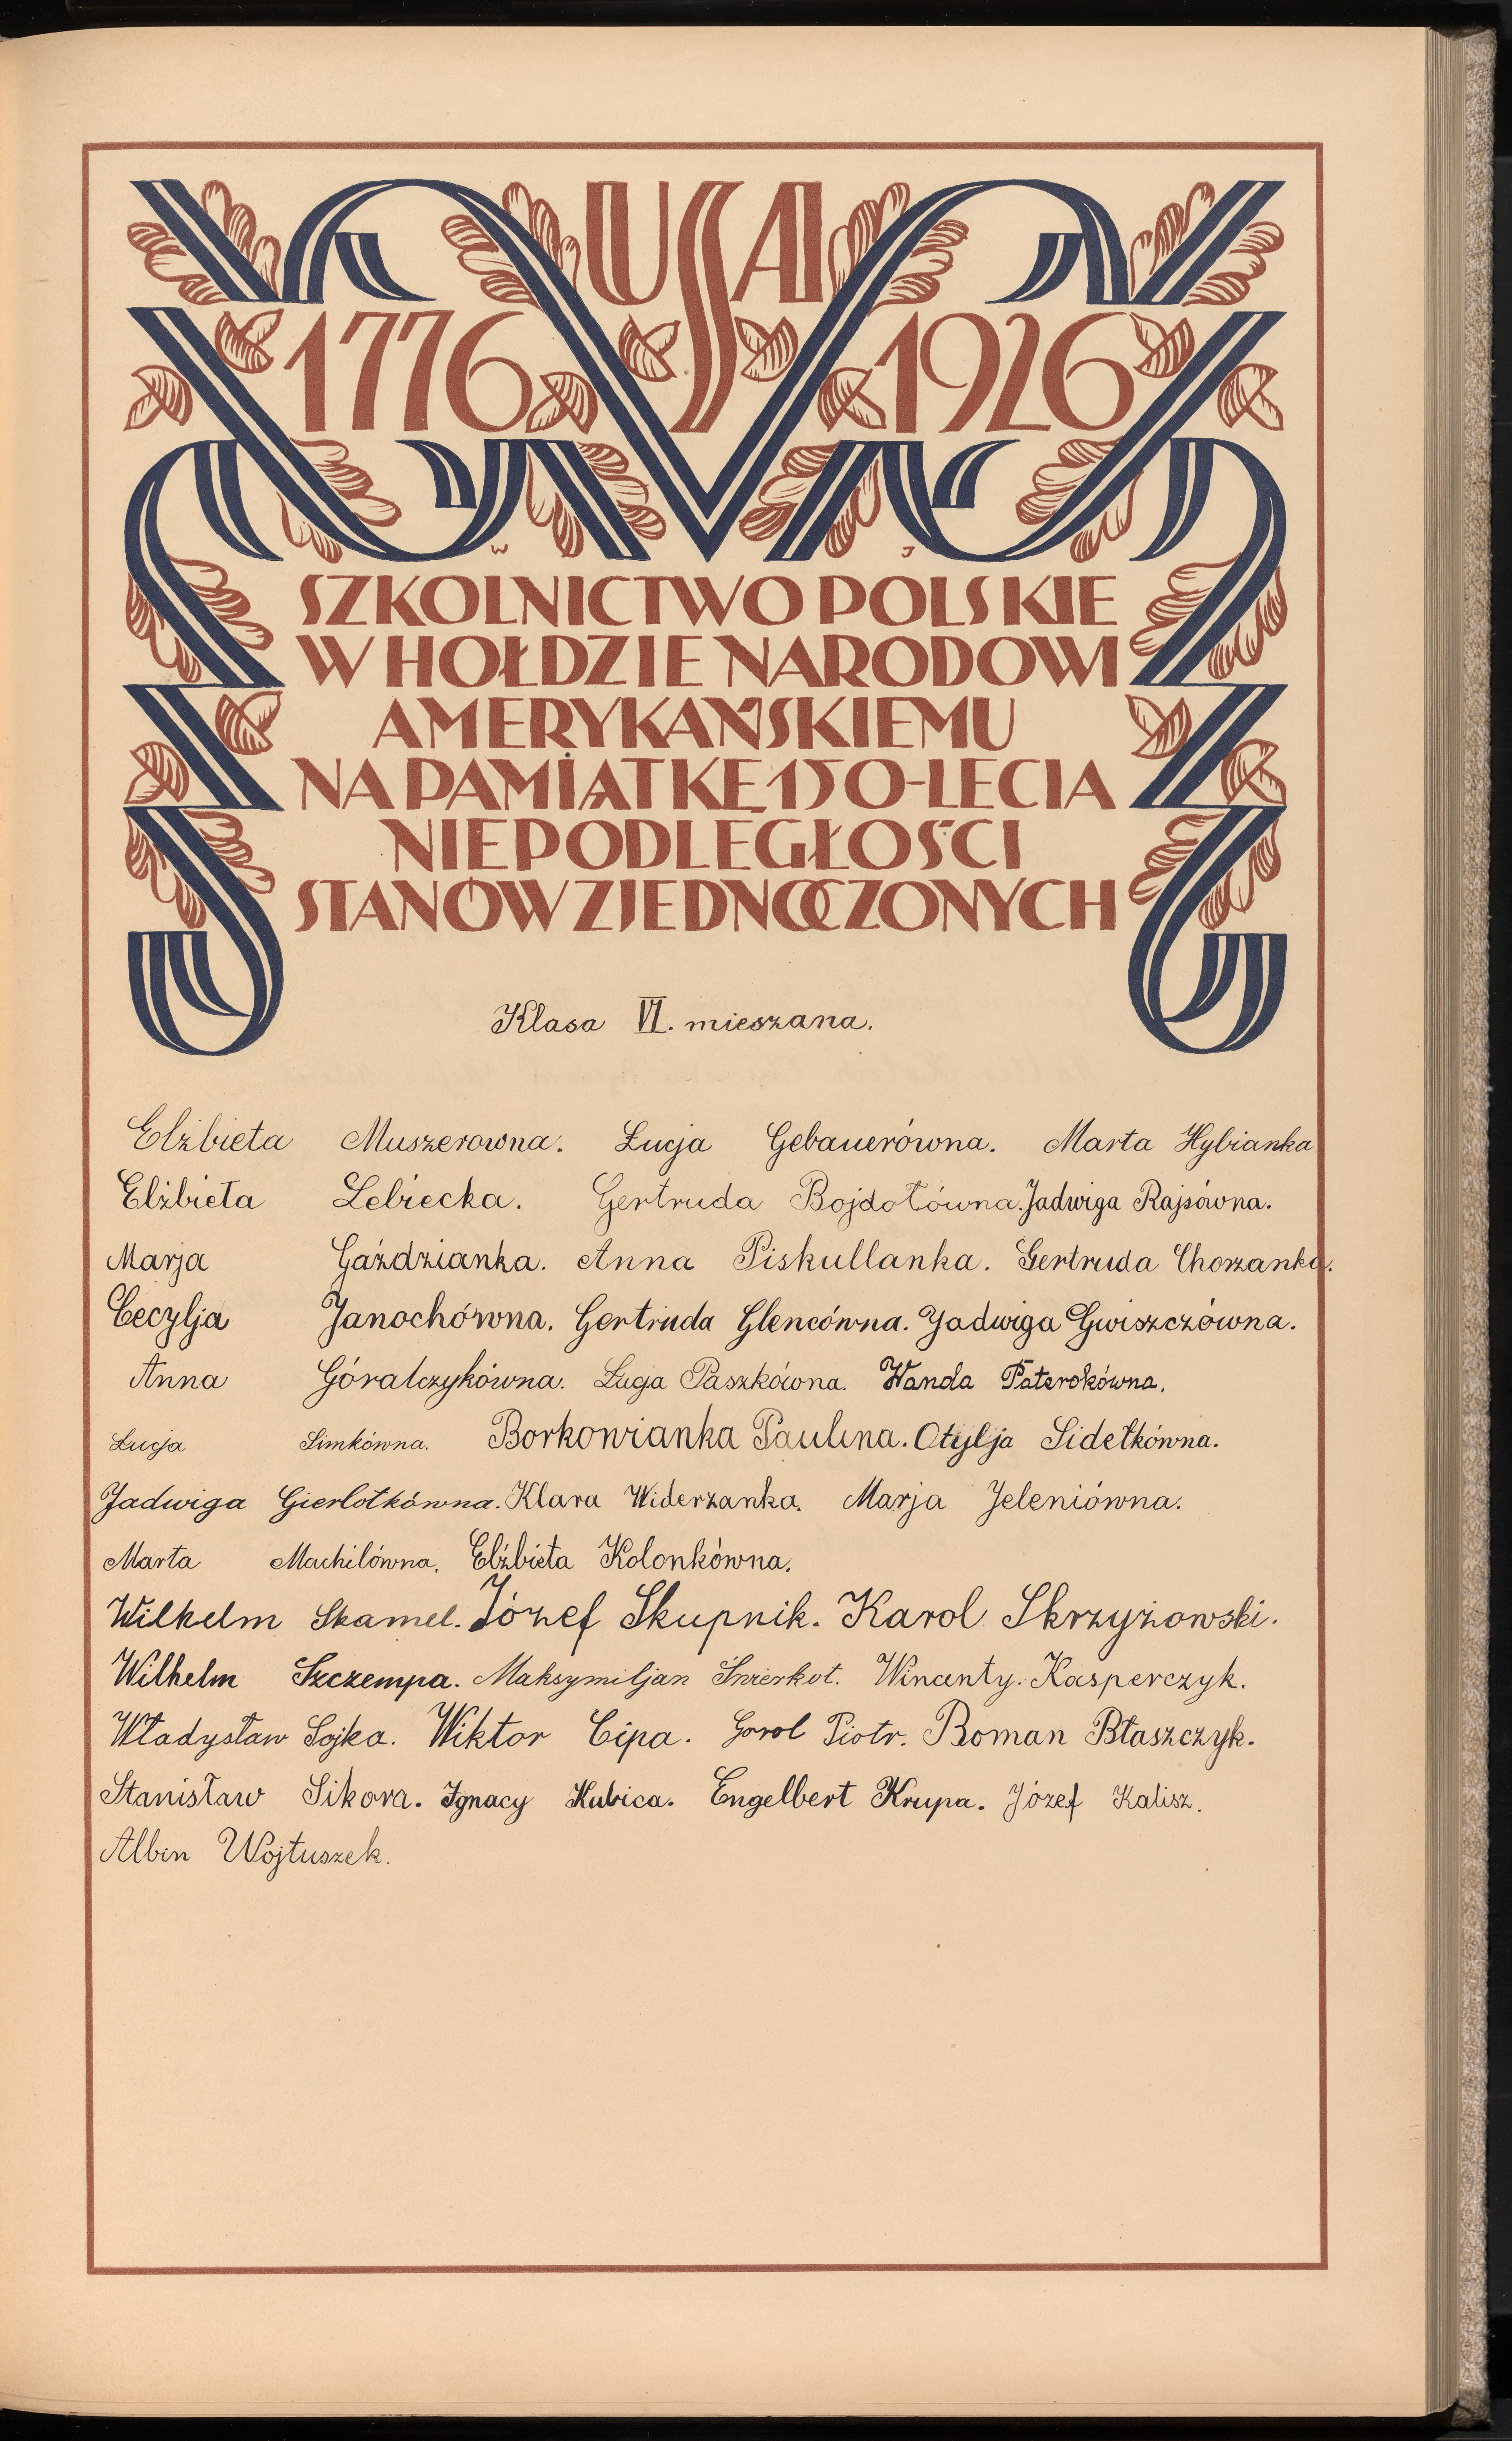 USA
1776 1926
W J
SZKOLNICTWO POLSKIE
W HOŁDZIE NARODOWI
AMERYKAŃSKIEMU
NA PAMIĄTKĘ 150-LECIA
NIEPODLEGŁOŚCI
STANÓW ZJEDNOCZONYCH
Klasa VI. mieszana.
Elżbieta Muszerowna. Łucja Gebauerówna. Marta Hybianka
Elżbieta Lebiecka. Gertruda Bojdołówna. Jadwiga Rajsówna.
Marja Gaździanka. Anna Piskullanka. Gertruda Chorzanka.
Cecylja Janochówna. Gertruda Glencówna. Jadwiga Gwiszczówna.
Anna Góralczykówna. Łucja Paszkówna. Wanda Paterokówna.
Łucja Simkówna. Borkowianka Paulina. Otylja Sidełkówna.
Jadwiga Gierlotkówna. Klara Widerzanka. Marja Jeleniówna.
Marta Machilówna. Elżbieta Kolonkówna.
Wilhelm Skamel. Józef Skupnik. Karol Skrzyżowski.
Wilhelm Szczempa. Maksymiljan Śmierkot. Wincenty. Kasperczyk.
Władysław Sojka. Wiktor Cipa. Gorol Piotr. Roman Błaszczyk.
Stanisław Sikora. Ignacy Kubica. Engelbert Krupa. Józef Kalisz.
Albin Wojtuszek.